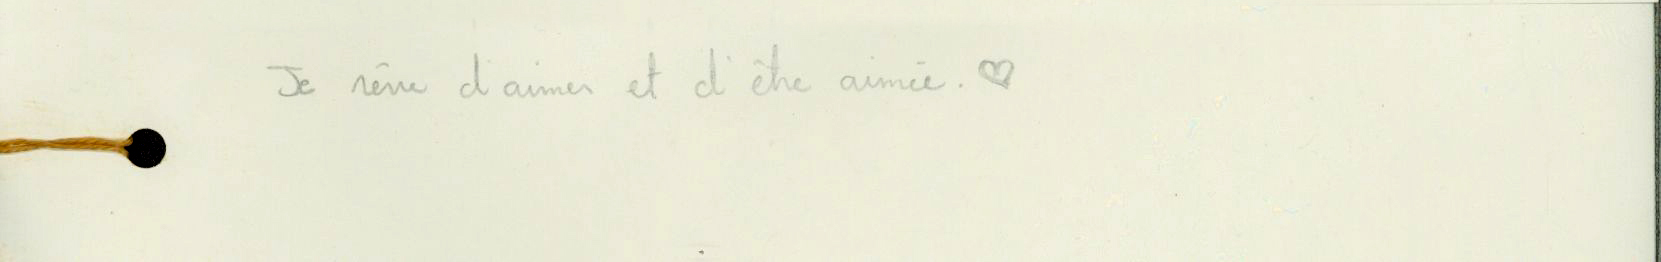 Je rêve d'aimer et d'être aimée. ♡